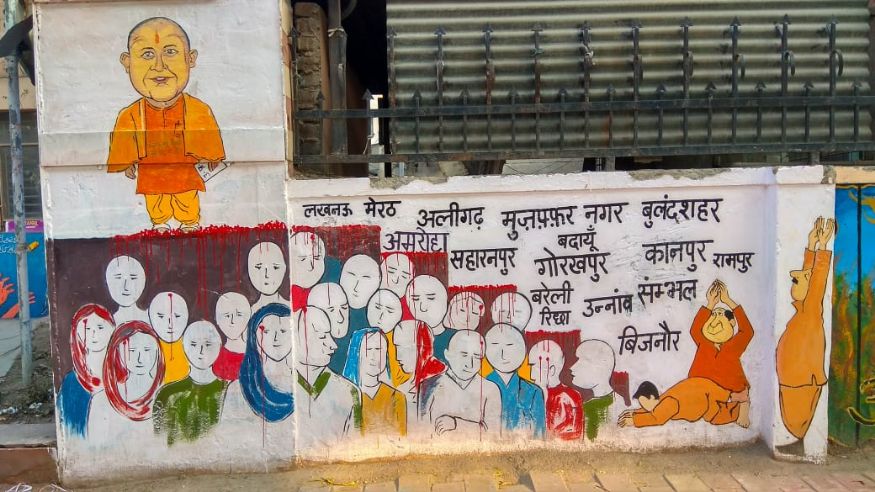 लखनऊ मेरठ अलीगढ़ मुज़फ़्फ़र नगर बुलंदशहर
अमरोहा सहारनपुर बदायूँ गोरखपुर कानपुर रामपुर
बरेली रिछा उन्नांव संम्भल
बिजनौर